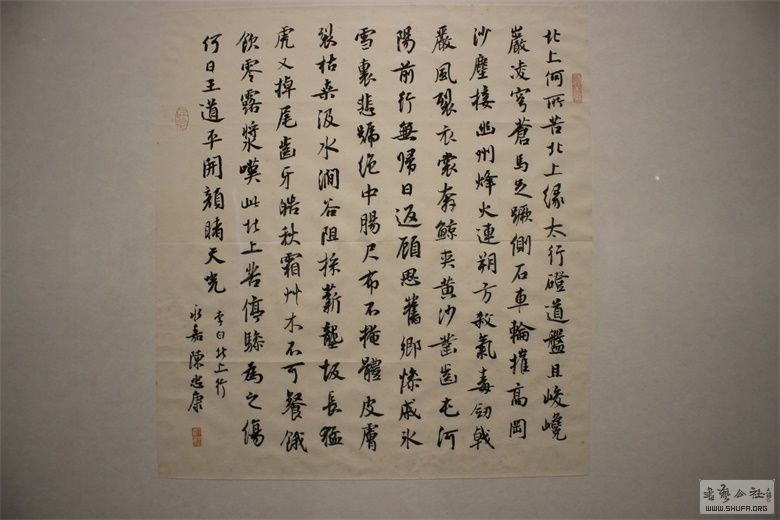 北上何所苦北上緣太行磴道盤且峻巉
巖凌穹蒼馬足蹶側石車輪摧高岡
沙塵接幽州烽火連朔方殺氣毒劒戟
嚴風裂衣裳奔鯨夾黄沙鑿齒屯河
陽前行無歸日返顧思舊鄉慘戚氷
雪裏悲號絶中腸尺布不掩體皮膚
裂枯桑汲水澗谷阻採薪壟坂長猛
虎又掉尾齒牙皓秋霜艸木不可餐餓
飲零露漿嘆此北上苦停驂為之傷
何日王道平開顏睹天光
李白北上行
永嘉陳忠康
書藝公社
WWW.SHUFA.ORG